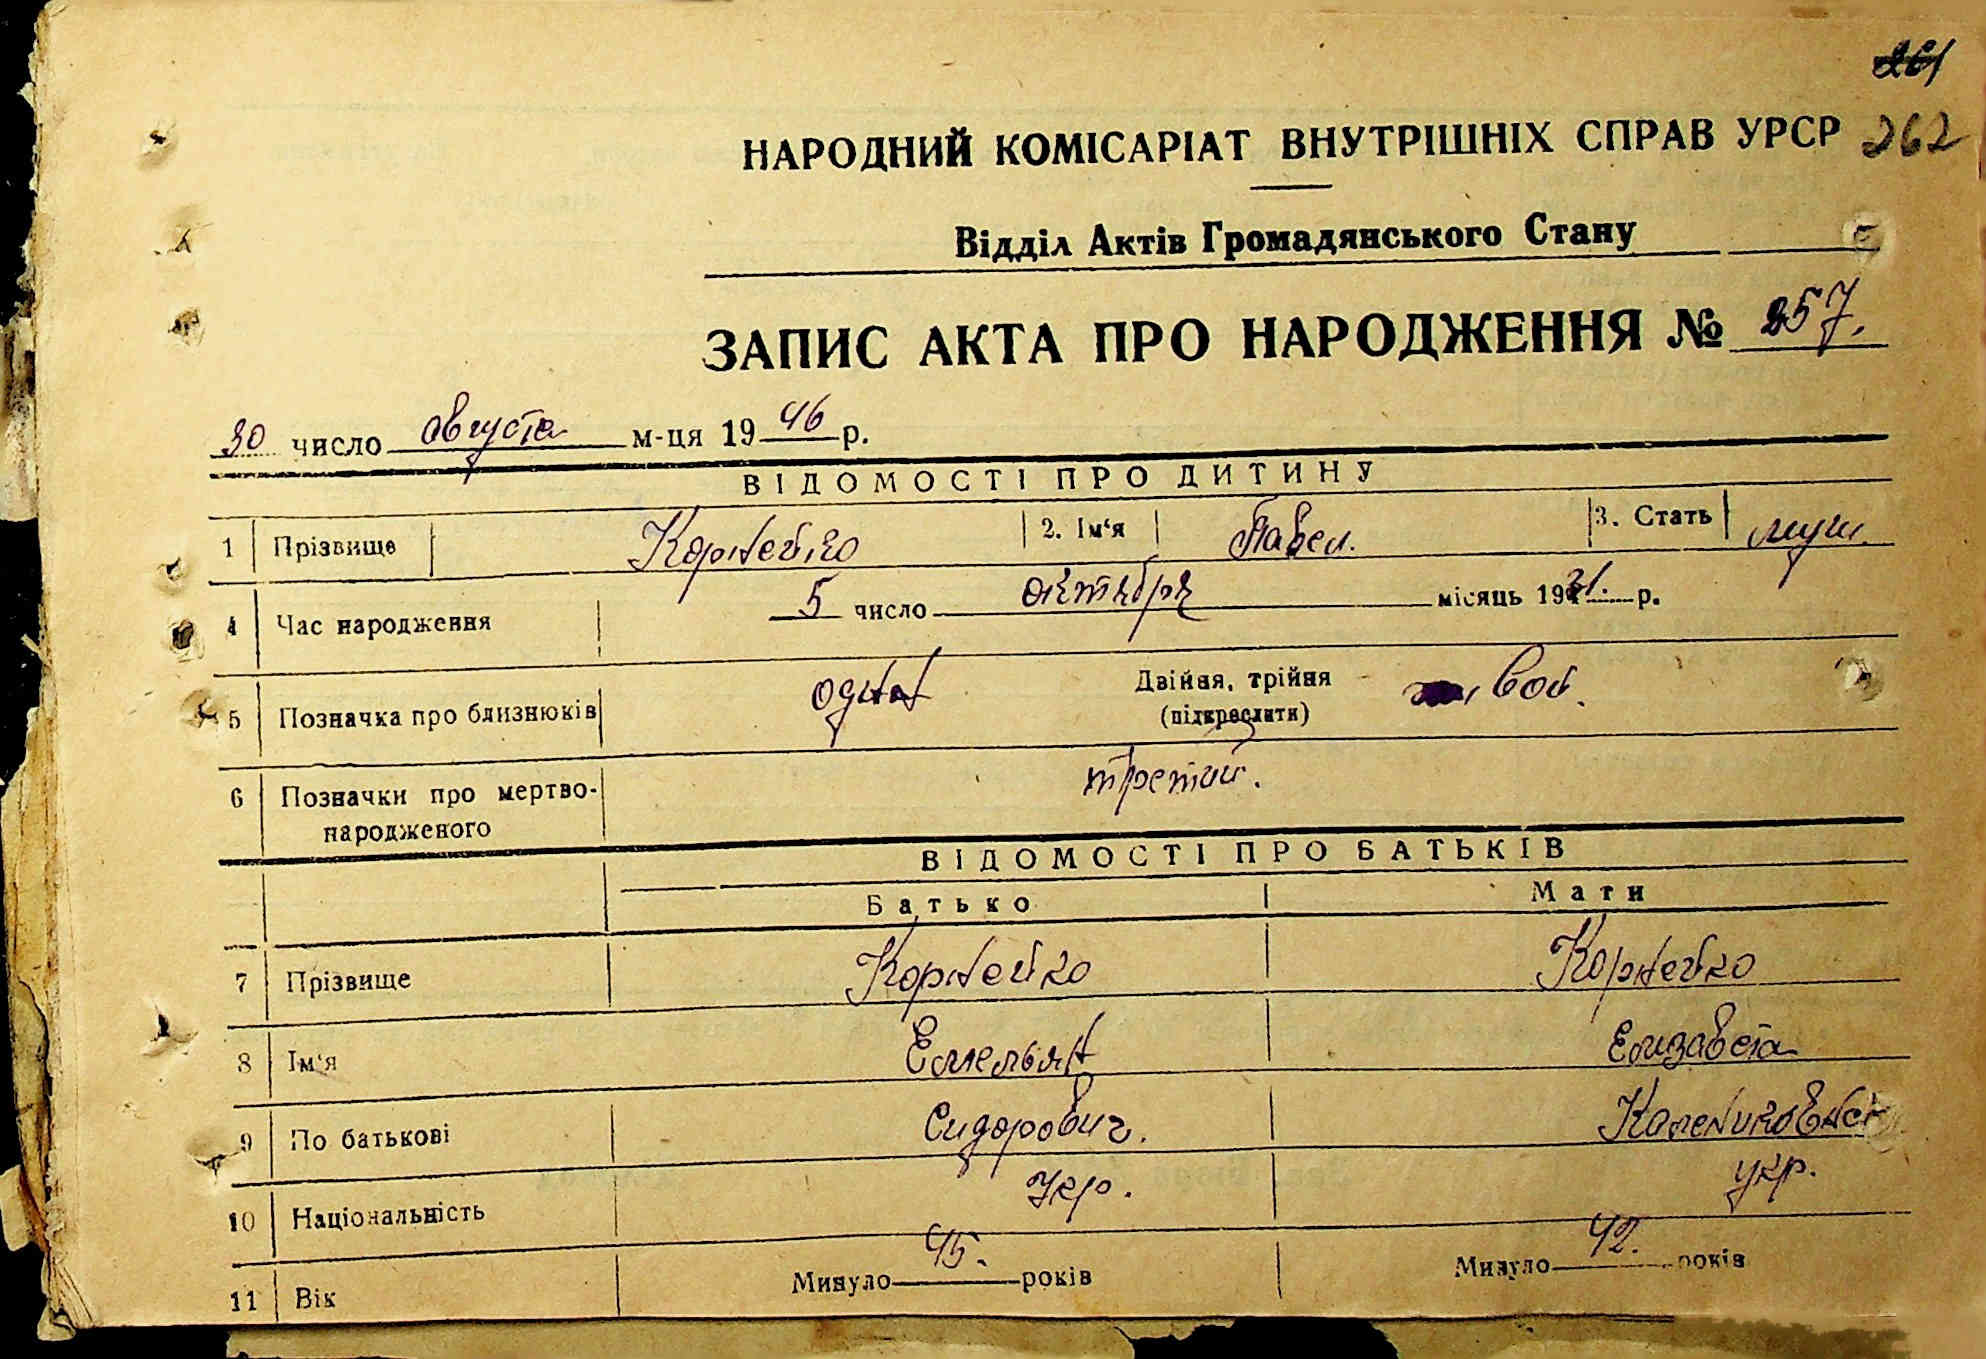 261
НАРОДНИЙ КОМІСАРІАТ ВНУТРІШНІХ СПРАВ УРСР 262
Відділ Актів Громадянського Стану
ЗАПИС АКТА ПРО НАРОДЖЕННЯ № 257.
30 число августа м-ця 1946 р.
ВІДОМОСТІ ПРО ДИТИНУ
1 Прізвище Корнейко 2. Ім'я Павел. 3. Стать муж.
4 Час народження 5 число октября місяць 1931. р.
5 Позначка про близнюків один Двійня, трійня (підкреслити) живой.
6 Позначки про мертво-
народженого третий.
ВІДОМОСТІ ПРО БАТЬКІВ
Батько Мати
7 Прізвище Корнейко Корнейко
8 Ім'я Емельян Елизавета
9 По батькові Сидорович. Калениковна
10 Національність Укр. укр.
11 Вік Минуло 45. років Минуло 42. років